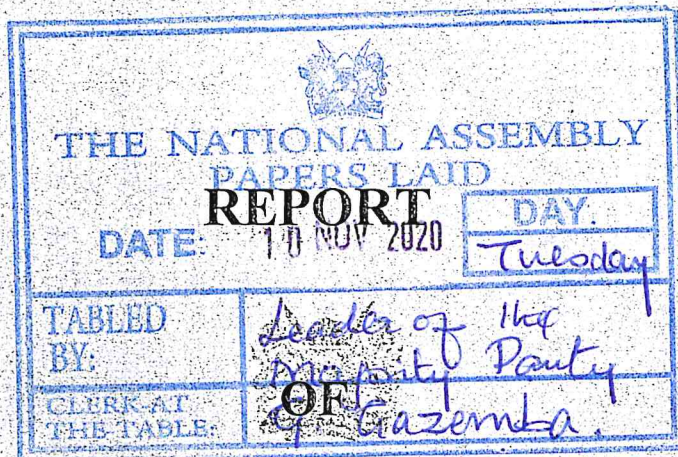 THE NATIONAL ASSEMBLY
PAPERS LAID
REPORT
DATE: 10 NOV 2020
DAY.
Tuesday
TABLED
BY:
Leader of the
Majority Party
OF
CLERK AT
THE TABLE:
Gazemba.